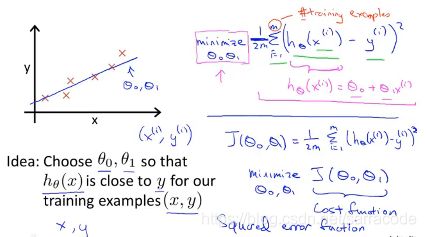 #training examples
minimize θ₀,θ₁ 1/2m Σ_{i=1}^{m} (h_θ(x^(i)) - y^(i))²
h_θ(x^(i)) = θ₀ + θ₁x^(i)
y
θ₀,θ₁
x
(x^(i), y^(i))
J(θ₀,θ₁) = 1/2m Σ_{i=1}^{m} (h_θ(x^(i)) - y^(i))²
Idea: Choose θ₀, θ₁ so that
h_θ(x) is close to y for our
training examples (x, y)
x, y
minimize θ₀,θ₁ J(θ₀,θ₁)
Cost function
Squared error function